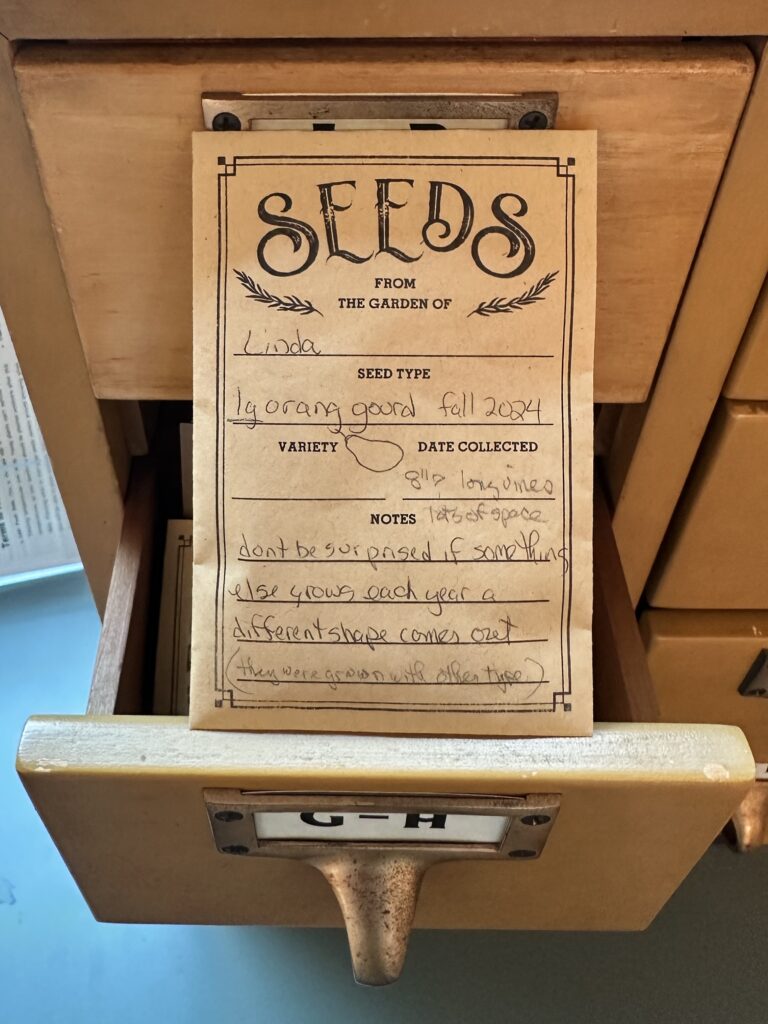 SEEDS
FROM
THE GARDEN OF
Linda
SEED TYPE
lg orang gourd fall 2024
VARIETY DATE COLLECTED
8"? long vines
NOTES lots of space
dont be surprised if something
else grows each year a
different shape comes out
(they were grown with other type)
G-H